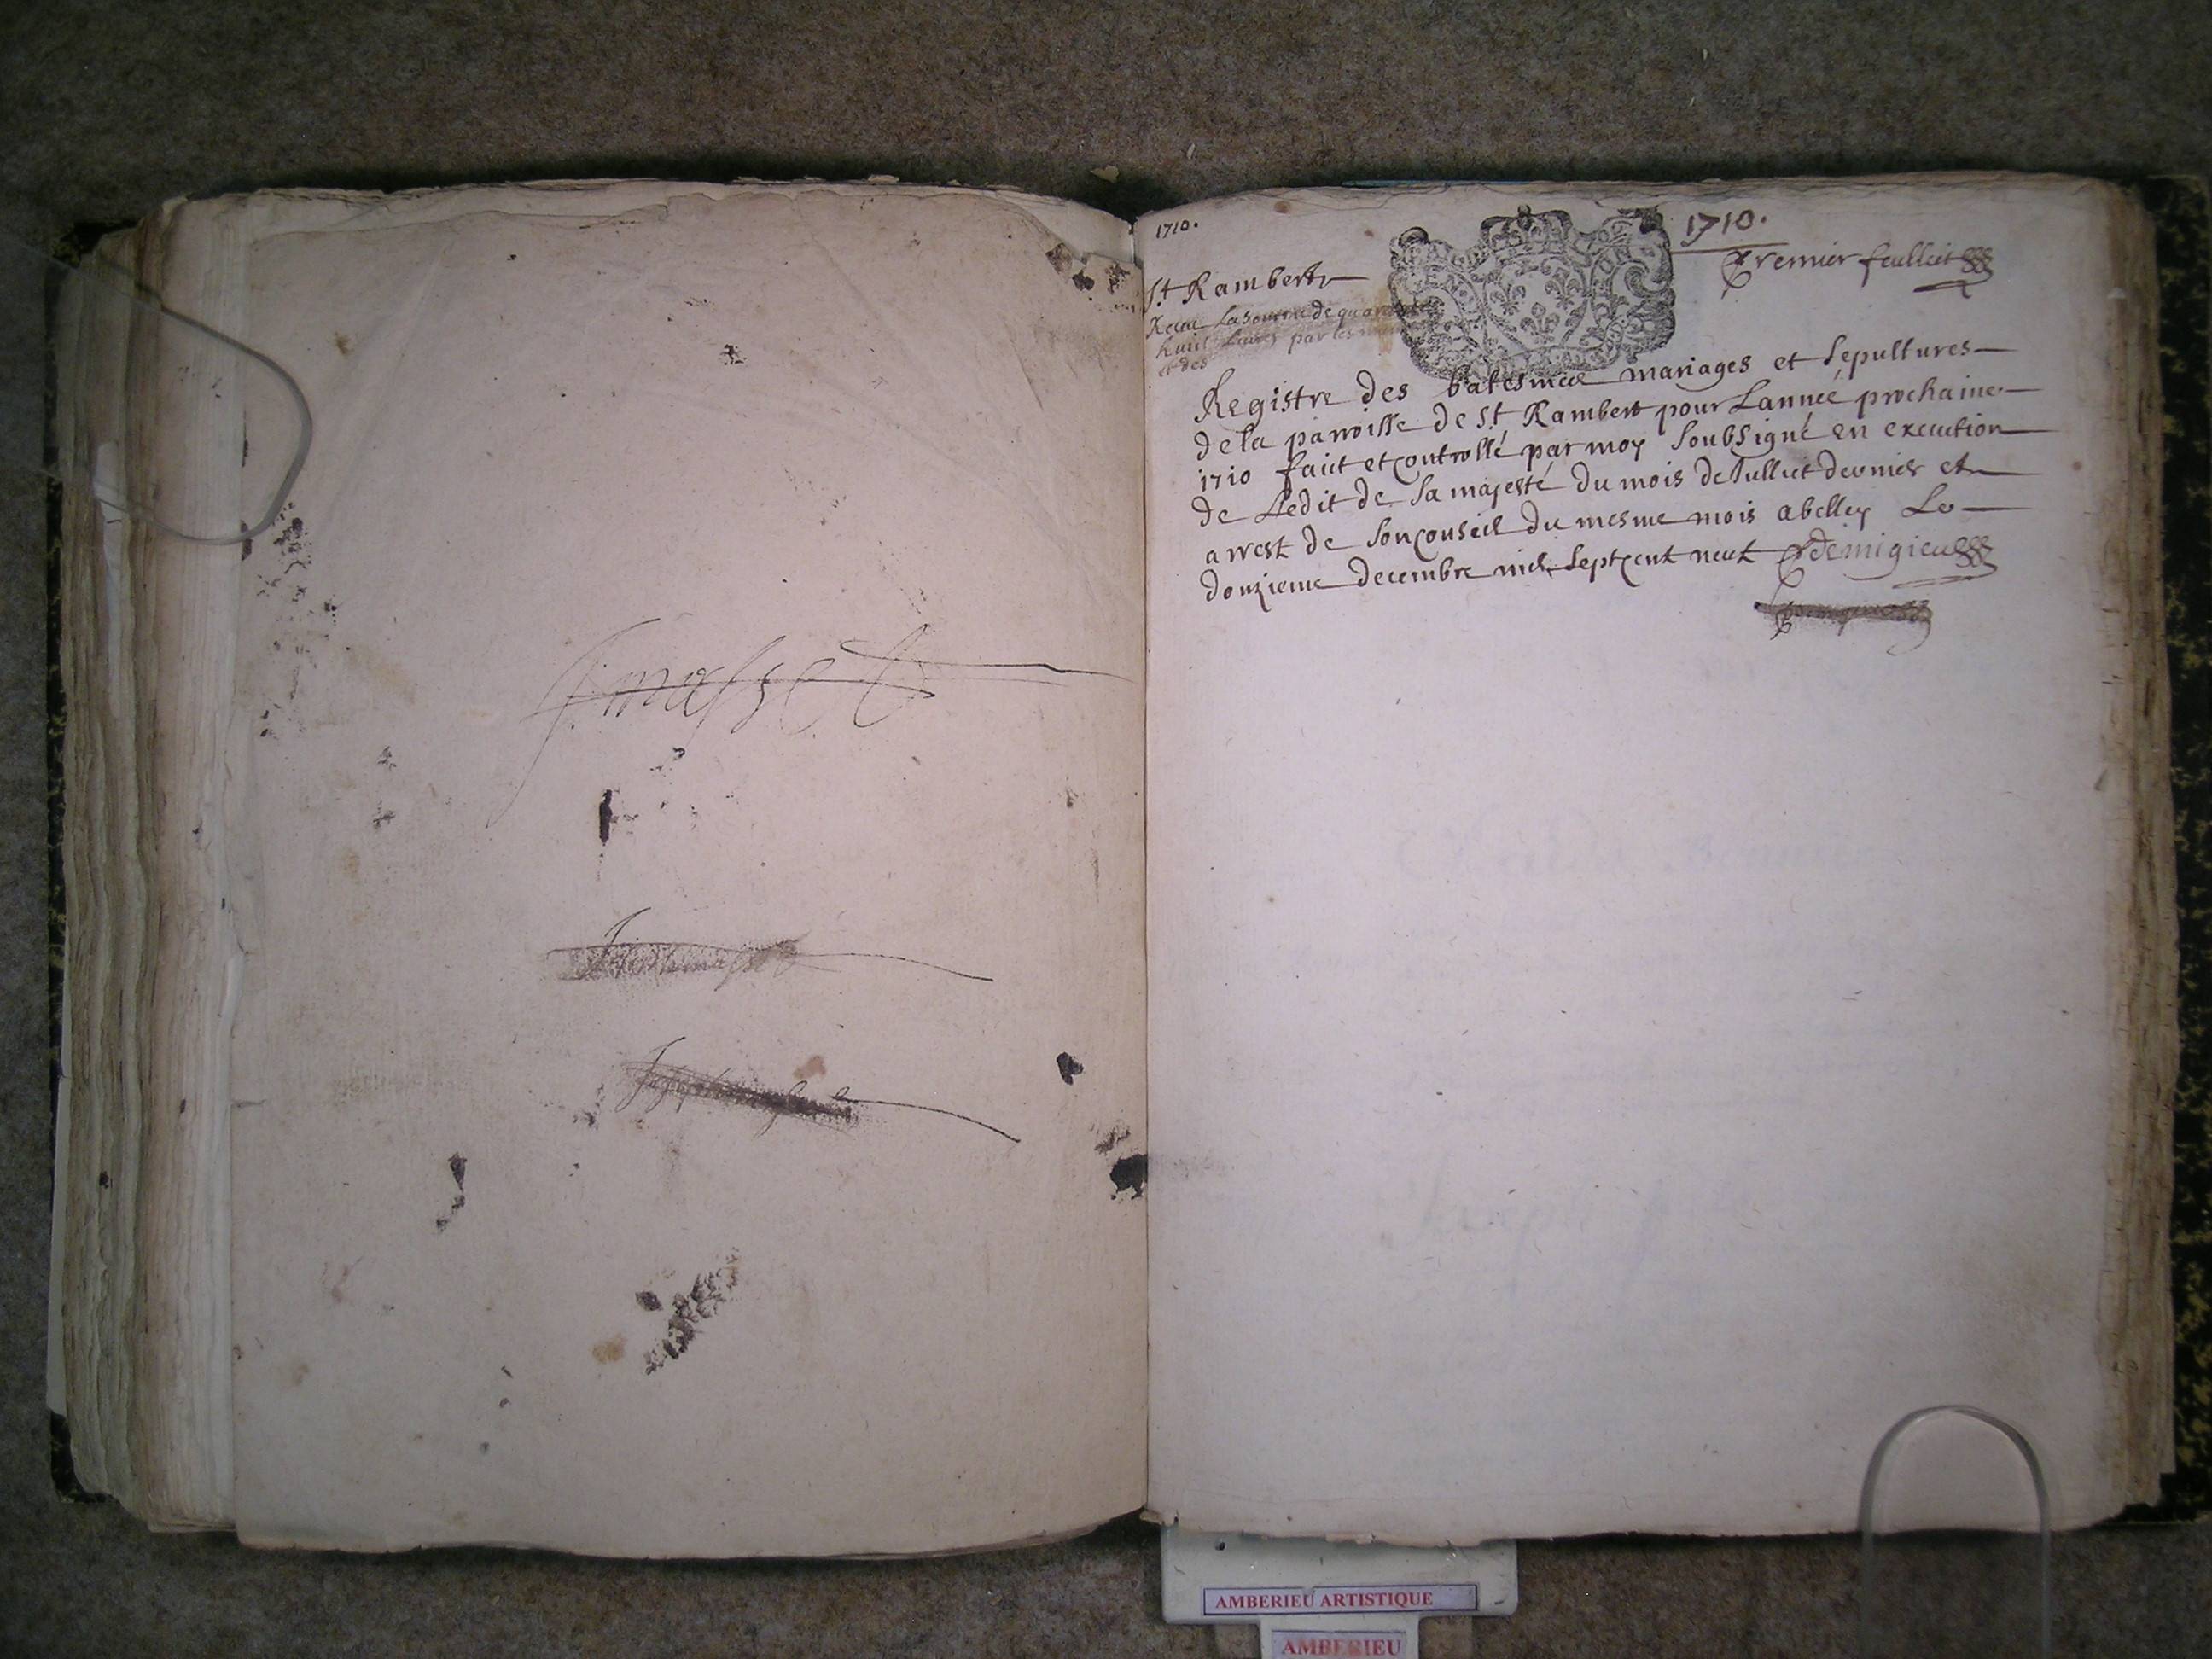 J. masset
1710.
1710.
premier feulliet
St Rambert
Receu La somme de quarante
huit livres par les
et des
Registre des batesmes mariages et sepultures
de la parroisse de St Rambert pour Lannée prochaine
1710 faict et controllé par moy soubsigné en execution
de Ledit de sa majesté du mois de Julliet dernier et
arrest de son conseil du mesme mois a belley Le
douzieme decembre mil sept cent neuf demigieu
AMBERIEU ARTISTIQUE
AMBERIEU